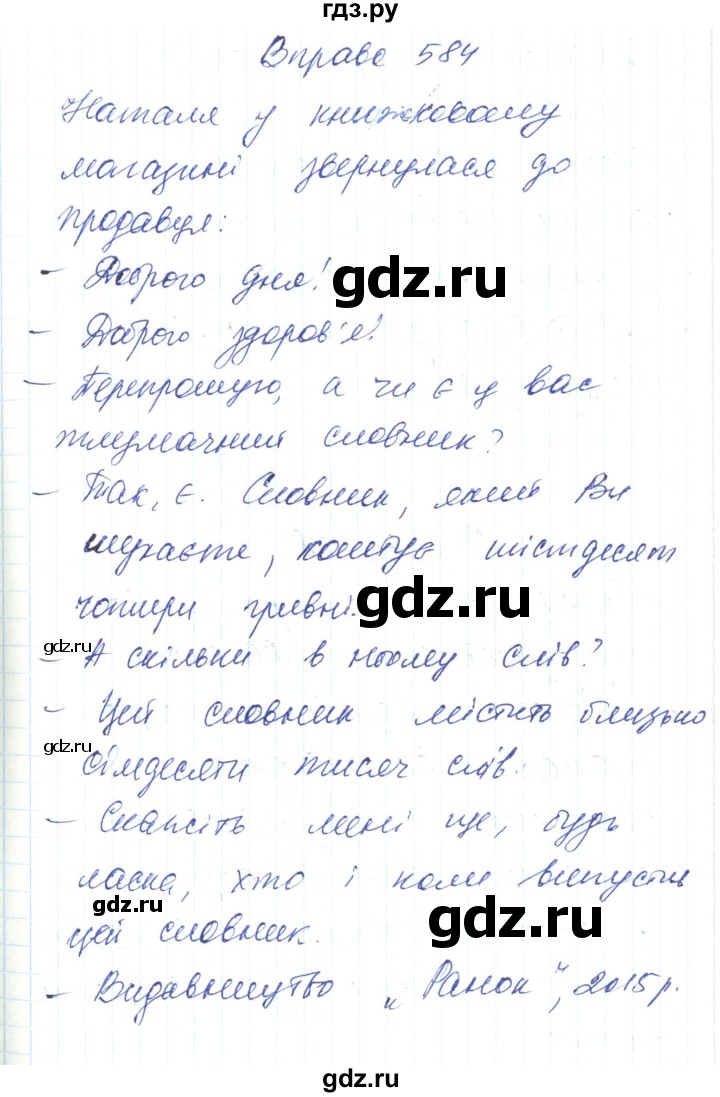 гдз.ру
Вправа 584
Наталя у книжковому
магазині звернулася до
продавця:
- Доброго дня!
gdz.ru
- Доброго здоров'я!
- Перепрошую, а чи є у вас
тлумачний словник?
- Так, є. Словник, який Ви
шукаєте, коштує шістдесят
чотири гривні.
gdz.ru
gdz.ru
- А скільки в ньому слів?
- Цей словник містить близько
gdz.ru
сімдесяти тисяч слів.
- Скажіть мені ще, будь
ласка, хто і коли випустив
gdz.ru
gdz.ru
цей словник.
- Видавництво „Ранок", 2015 р.
gdz.ru